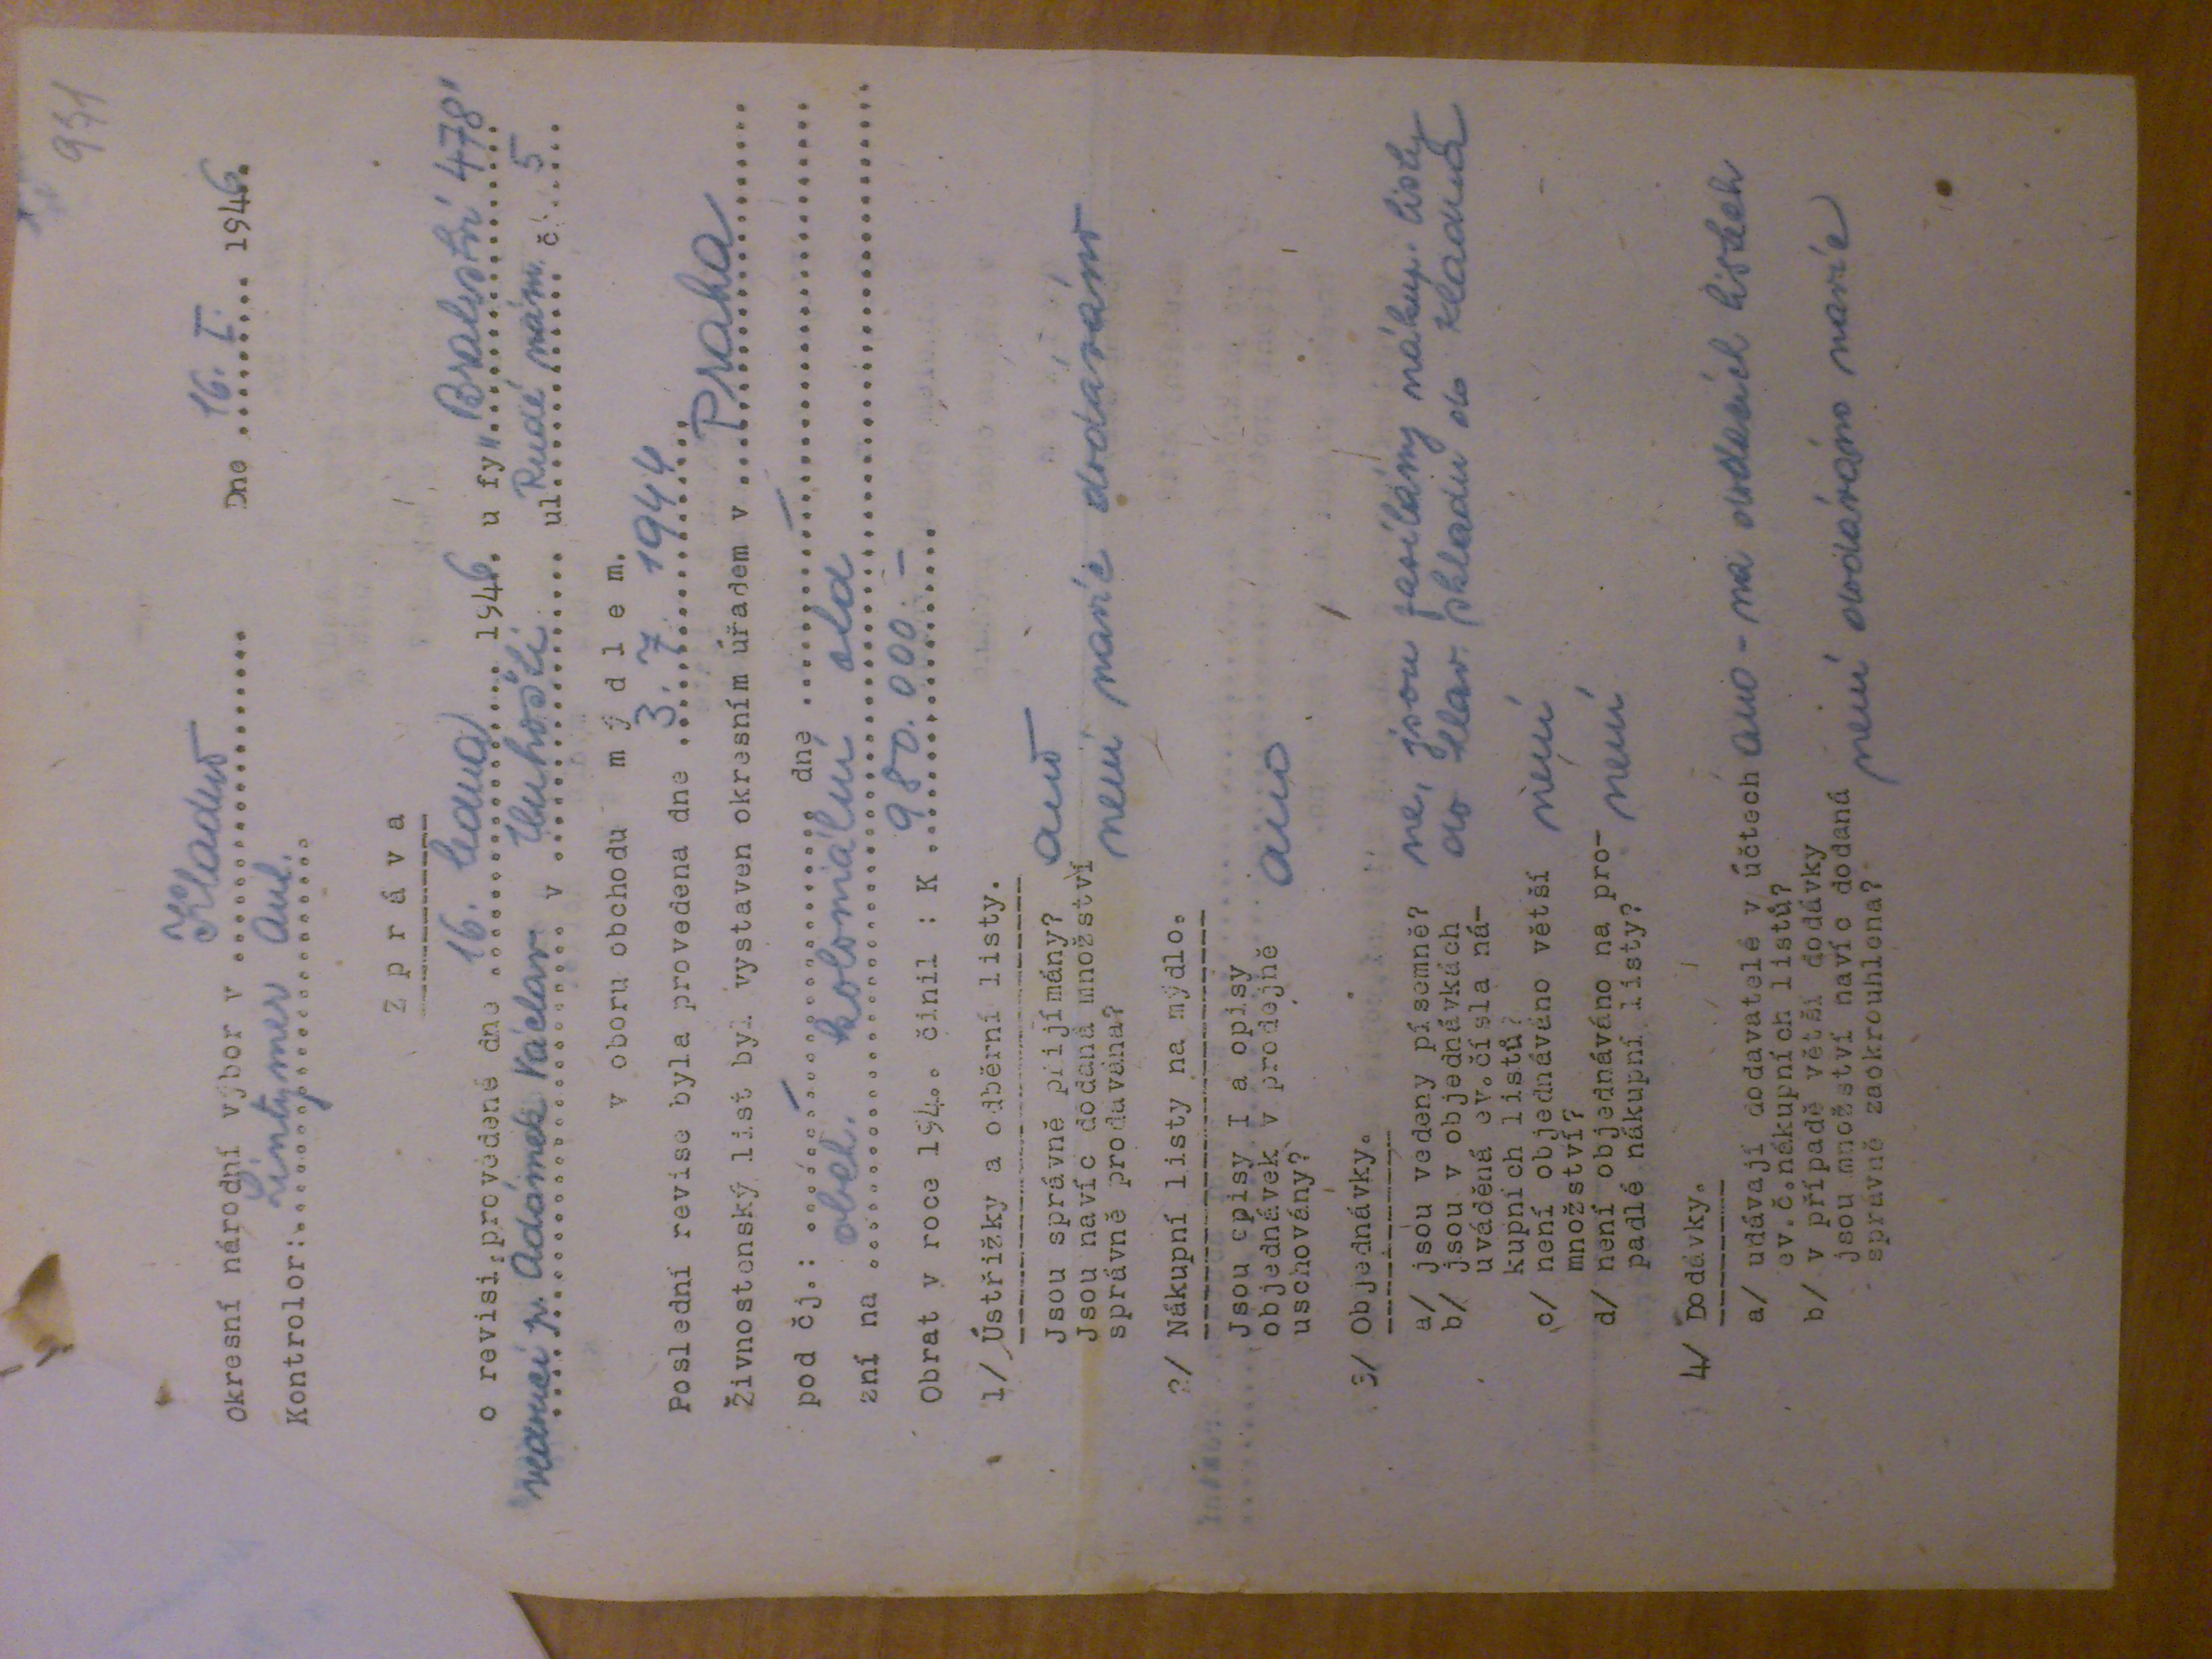 931
Okresní národní výbor v Kladno Dne 16. I. 1946.
Kontrolor: Lintymer Ant.
Zpráva
o revisi, provedené dne 16. ledna 1946. u fy „Bratrství 478"
vedoucí p. Adámek Václav v Unhošti ul. Rudé nám. č. 5
v oboru obchodu mýdlem.
Poslední revise byla provedena dne 3. 7. 1944
Živnostenský list byl vystaven okresním úřadem v Praha
pod čj.: – dne –
zní na obch. koloniální atd
Obrat v roce 194.. činil : K 980.000.–
1/ Ústřižky a odběrní listy.
Jsou správně přijímány? ano
Jsou navíc dodaná množství
správně prodávána? není navíc dodáváno
2/ Nákupní listy na mýdlo.
Jsou opisy I a opisy
objednávek v prodejně ano
uschovány?
3/ Objednávky.
a/ jsou vedeny písemně? ne, jsou zasílány nákup. listy
b/ jsou v objednávkách do hlav. skladu do Kladna
uváděná ev.čísla ná-
kupních listů?
c/ není objednáváno větší není
množství?
d/ není objednáváno na pro- není
padlé nákupní listy?
4/ Dodávky.
a/ udávají dodavatelé v účtech ano - na dodacích listech
ev.č.nákupních listů?
b/ v případě větší dodávky
jsou množství navíc dodaná není dodáváno navíc
správně zaokrouhlena?